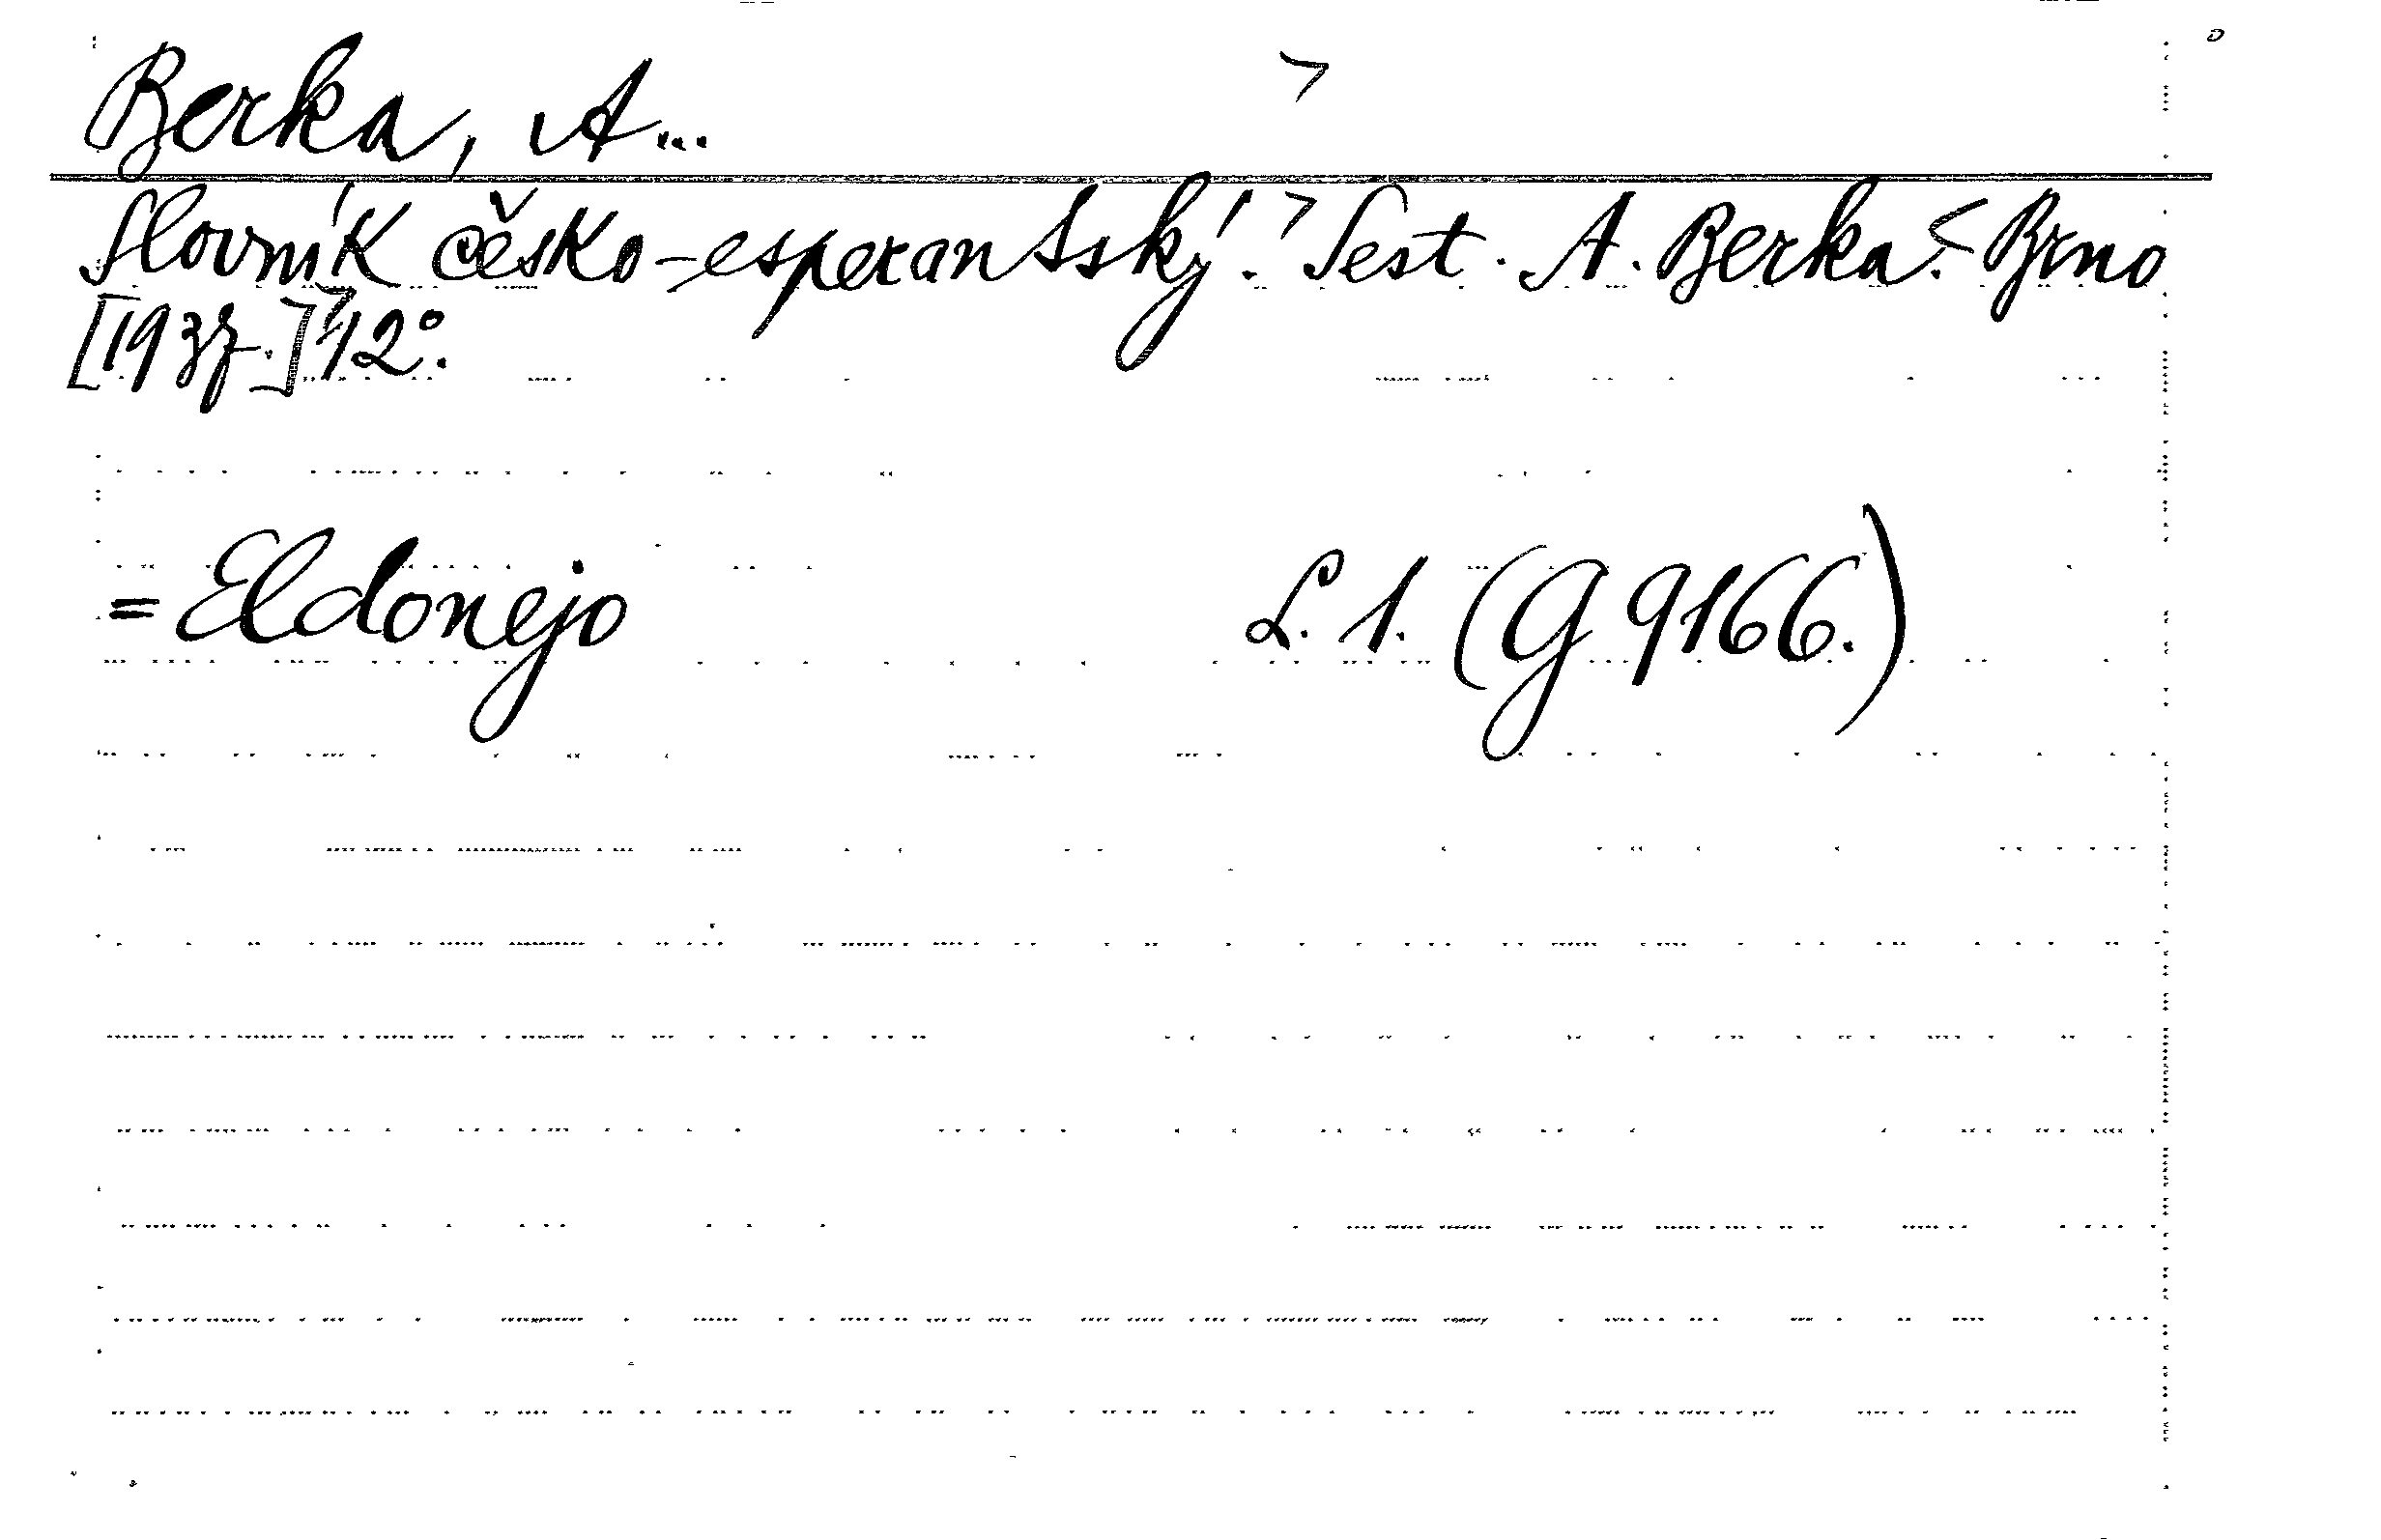 Berka, A...
Slovník česko-esperantský. Sest. A. Berka. Brno
[1937.] 12°.
= Eldonejo L. 1. (G 9166.)